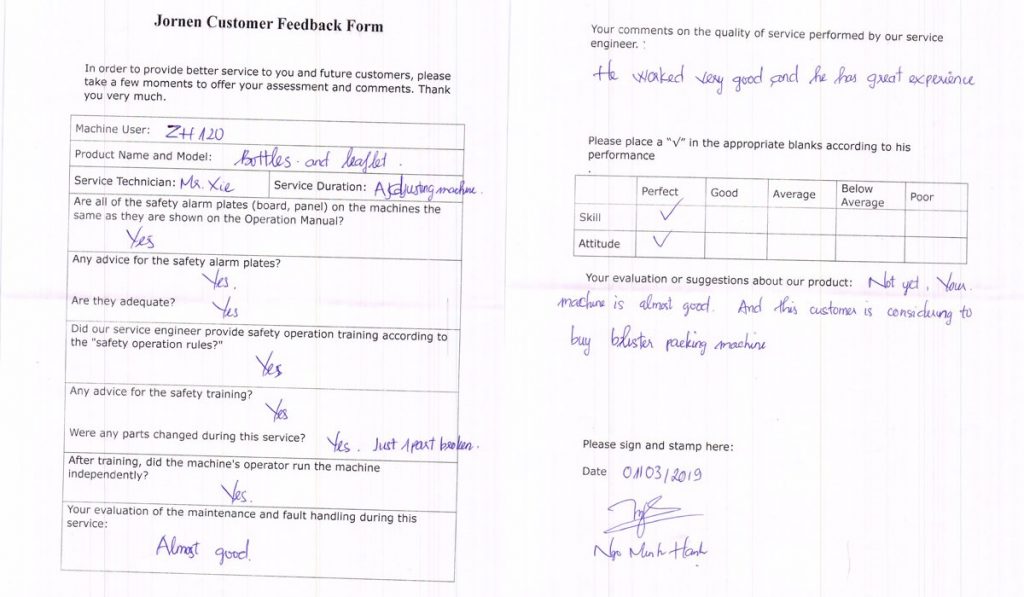 Jornen Customer Feedback Form
In order to provide better service to you and future customers, please
take a few moments to offer your assessment and comments. Thank
you very much.
Machine User: ZH120
Product Name and Model: Bottles and leaflet.
Service Technician: Mr. Xie Service Duration: Adjusting machine.
Are all of the safety alarm plates (board, panel) on the machines the
same as they are shown on the Operation Manual?
Yes
Any advice for the safety alarm plates?
Yes.
Are they adequate? Yes
Did our service engineer provide safety operation training according to
the "safety operation rules?"
Yes
Any advice for the safety training?
Yes
Were any parts changed during this service? Yes. Just 1 part broken.
After training, did the machine's operator run the machine
independently?
Yes.
Your evaluation of the maintenance and fault handling during this
service:
Almost good.
Your comments on the quality of service performed by our service
engineer. :
He worked very good and he has great experience
Please place a "√" in the appropriate blanks according to his
performance
Perfect Good Average Below Average Poor
Skill √
Attitude √
Your evaluation or suggestions about our product: Not yet. Your
machine is almost good. And this customer is considering to
buy blister packing machine
Please sign and stamp here:
Date 01/03/2019
Ngo Minh Hanh